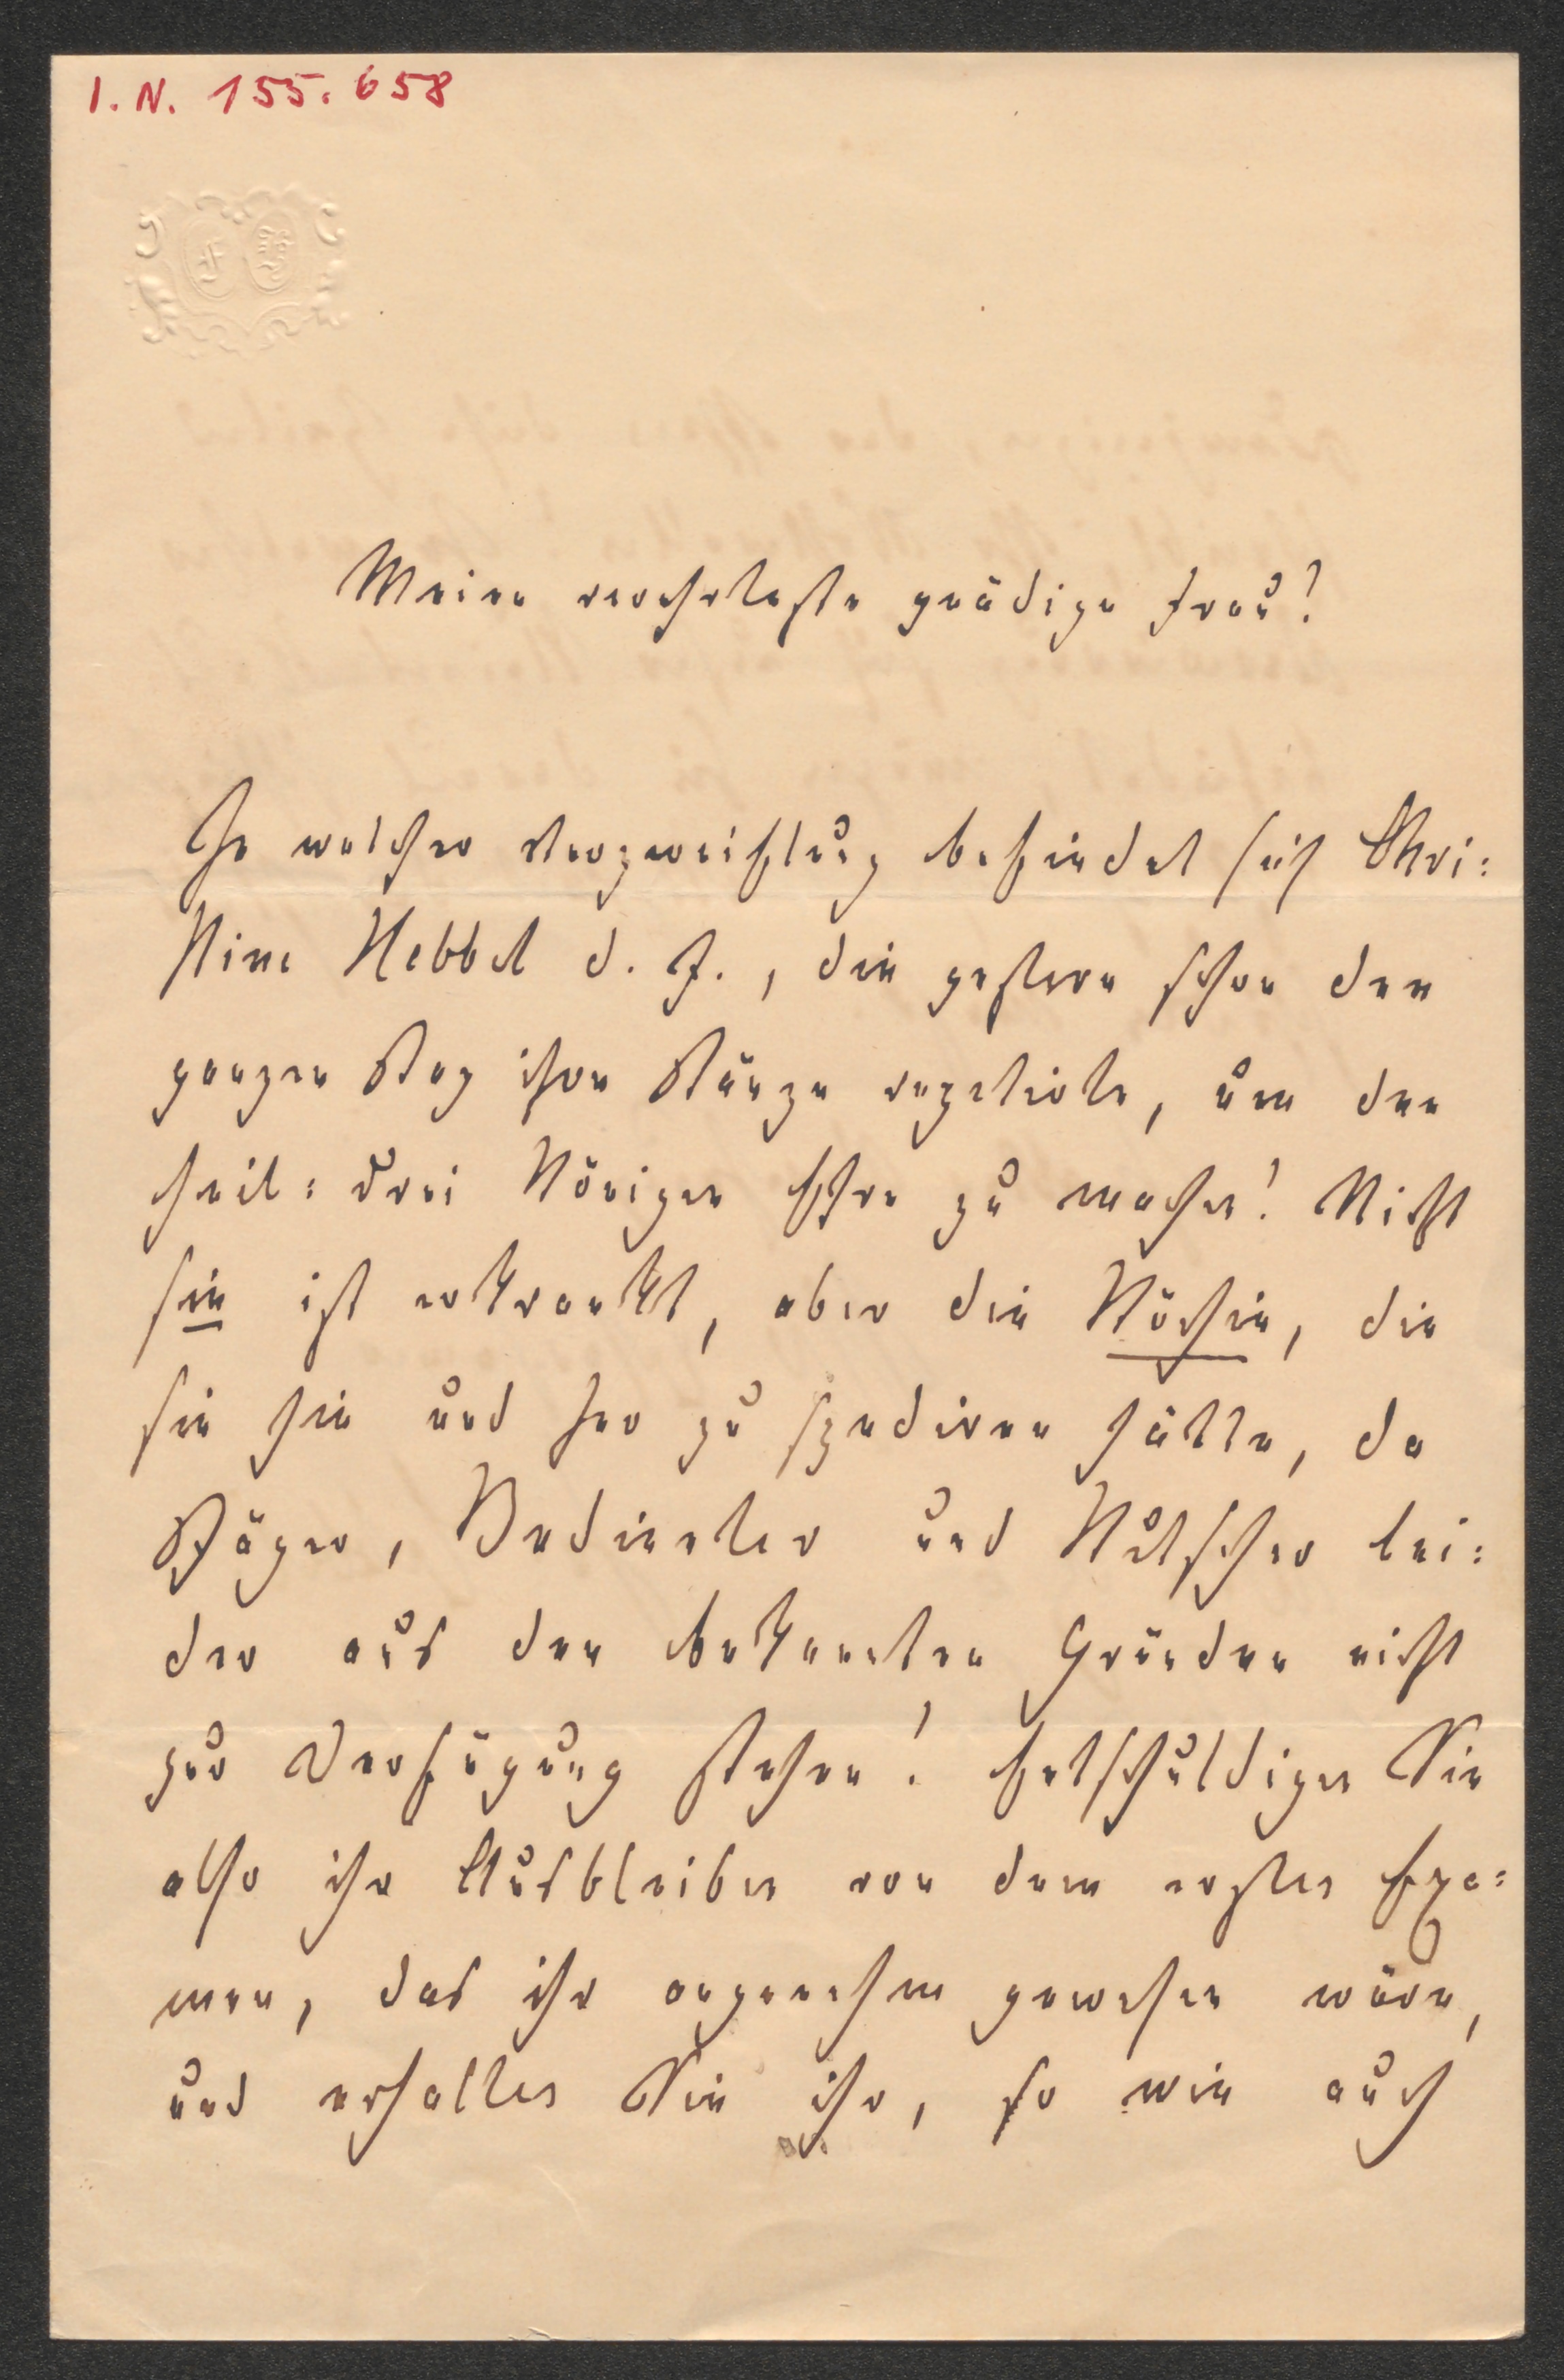 I. N. 155.658
Meine verehrteste gnädige Frau!
In welcher Verzweiflung befindet sich Chri:
stine Hebbel d. J., die gestern schon den
ganzen Tag ihre Tänze repetirte, um den
heil: drei Königen Ehre zu machen! Nicht
sie ist erkrankt, aber die Köchin, die
sie hin und her zu spediren hätte, da
Jäger, Bedienter und Kutscher lei:
der aus den bekannten Gründen nicht
zur Verfügung stehen! Entschuldigen Sie
also ihr Ausbleiben von dem ersten Exa:
men, das ihr angenehm gewesen wäre,
und erhalten Sie ihr, so wie auch